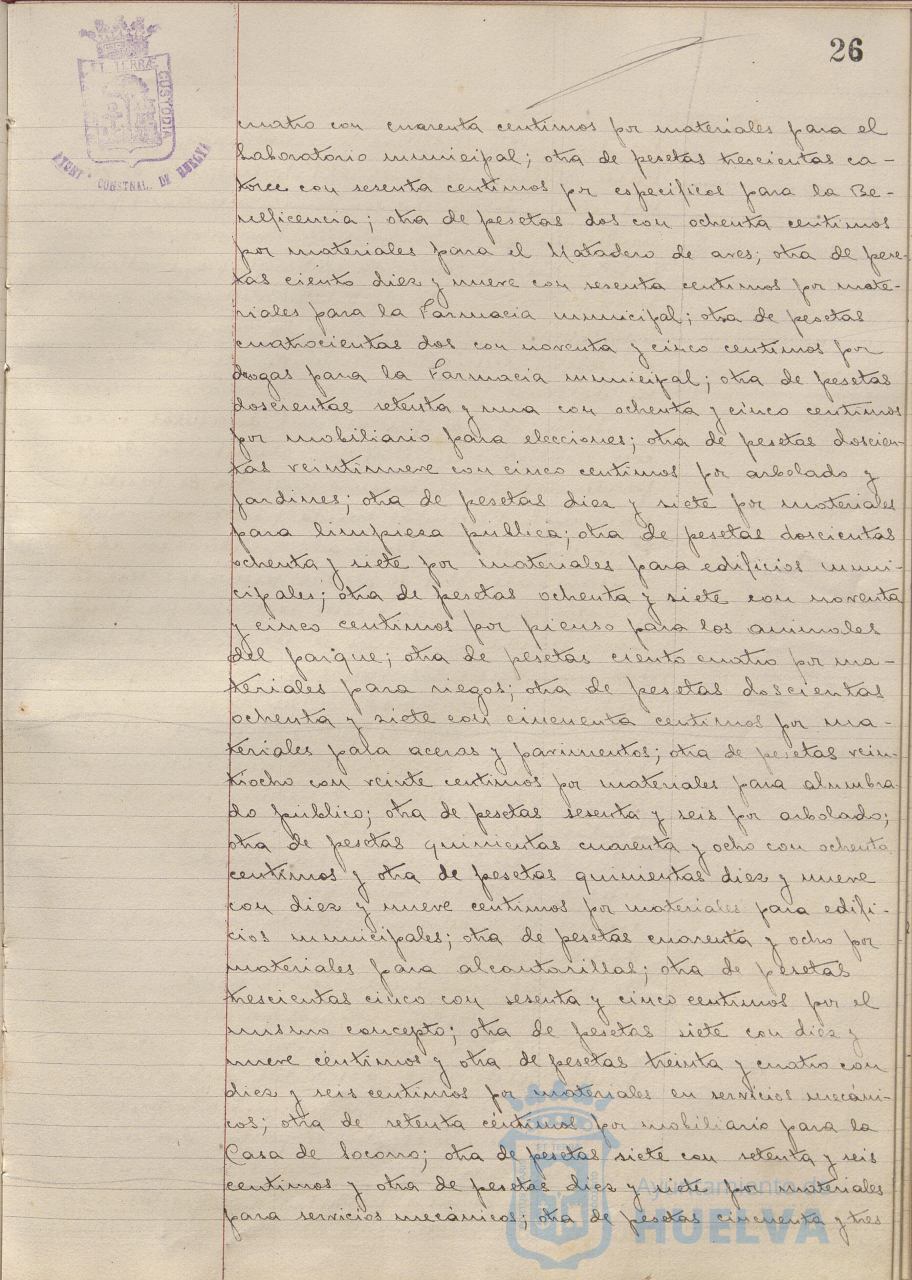 26
ET TERRÆ
CUSTODIA
AYUNT° CONSTNAL. DE HUELVA
cuatro con cuarenta centimos por materiales para el
Laboratorio municipal; otra de pesetas trescientas ca-
torce con sesenta centimos por especificos para la Be-
neficencia; otra de pesetas dos con ochenta centimos
por materiales para el Matadero de aves; otra de pese-
tas ciento diez y nueve con sesenta centimos por mate-
riales para la Farmacia municipal; otra de pesetas
cuatrocientas dos con noventa y cinco centimos por
drogas para la Farmacia municipal; otra de pesetas
doscientas setenta y una con ochenta y cinco centimos
por mobiliario para elecciones; otra de pesetas doscien-
tas veintinueve con cinco centimos por arbolado y
jardines; otra de pesetas diez y siete por materiales
para limpiesa pública; otra de pesetas doscientas
ochenta y siete por materiales para edificios muni-
cipales; otra de pesetas ochenta y siete con noventa
y cinco centimos por pienso para los animales
del parque; otra de pesetas ciento cuatro por ma-
teriales para riegos; otra de pesetas doscientas
ochenta y siete con cincuenta centimos por ma-
teriales pala aceras y pavimentos; otra de pesetas vein-
tiocho con veinte centimos por materiales para alumbra-
do público; otra de pesetas sesenta y seis por arbolado;
otra de pesetas quinientas cuarenta y ocho con ochenta
centimos y otra de pesetas quinientas diez y nueve
con diez y nueve centimos por materiales para edifi-
cios municipales; otra de pesetas cuarenta y ocho por
materiales para alcantarillas; otra de pesetas
trescientas cinco con sesenta y cinco centimos por el
mismo concepto; otra de pesetas siete con diez y
nueve céntimos y otra de pesetas treinta y cuatro con
diez y seis centimos por materiales en servicios mecáni-
cos; otra de setenta céntimos por mobiliario para la
Casa de Socorro; otra de pesetas siete con setenta y seis
centimos y otra de pesetas diez y siete por materiales
para servicios mecánicos; otra de pesetas cincuenta y tres
Ayuntamiento de
HUELVA